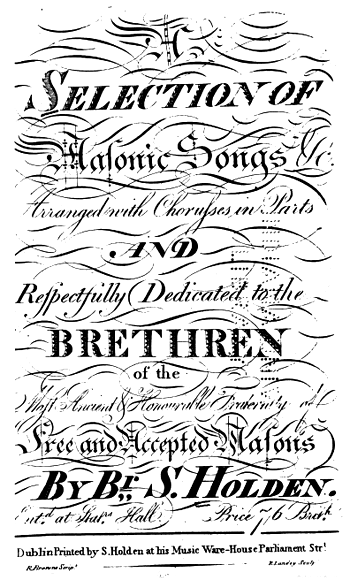 A
SELECTION OF
Masonic Songs &c.
Arranged with Chorusses in Parts
AND
Reſpectfully Dedicated to the
BRETHREN
of the
Most Ancient & Honourable Fraternity of
Free and Accepted Masons
BY BR. S. HOLDEN.
Ent.d at Stat.rs Hall. Price 7/6 Brit.h
Dublin Printed by S. Holden at his Music Ware-House Parliament Str.t